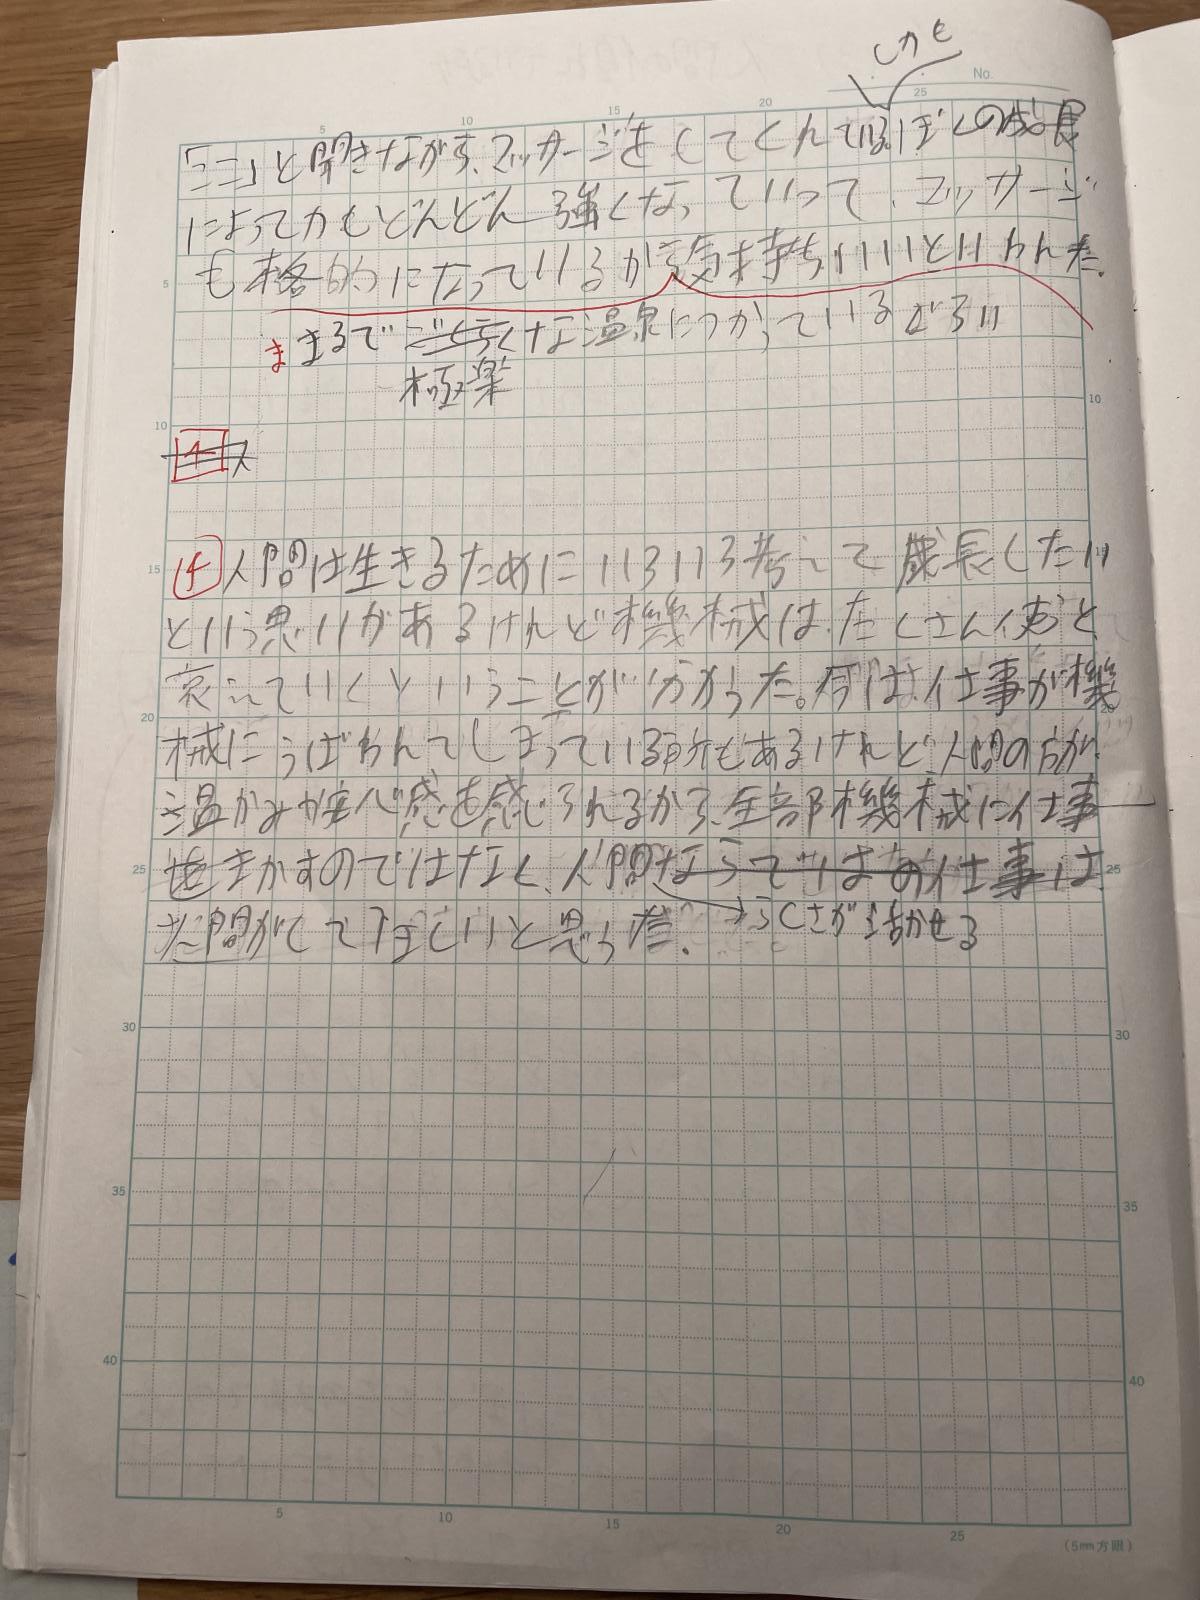 しかも
No.
「ここ」と聞きながら、マッサージをしてくれているぼくの成長
によって力もどんどん強くなっていって、マッサージ
も格的になっているから気持ちいいといわれた。
ままるでごくらくな温泉につかっているぐらい
極楽
4
4 人間は生きるためにいろいろ考えて成長したい
という思いがあるけれど機械は、たくさん使うと
衰えていくということが分かった。今は、仕事が機
械にうばわれてしまっている所もあるけれど、人間の方が
温かみや安心感を感じられるから、全部機械に仕事
をまかすのではなく、人間ならではの仕事は
人間がしてほしいと思った。
らしさが活かせる
(5mm方眼)